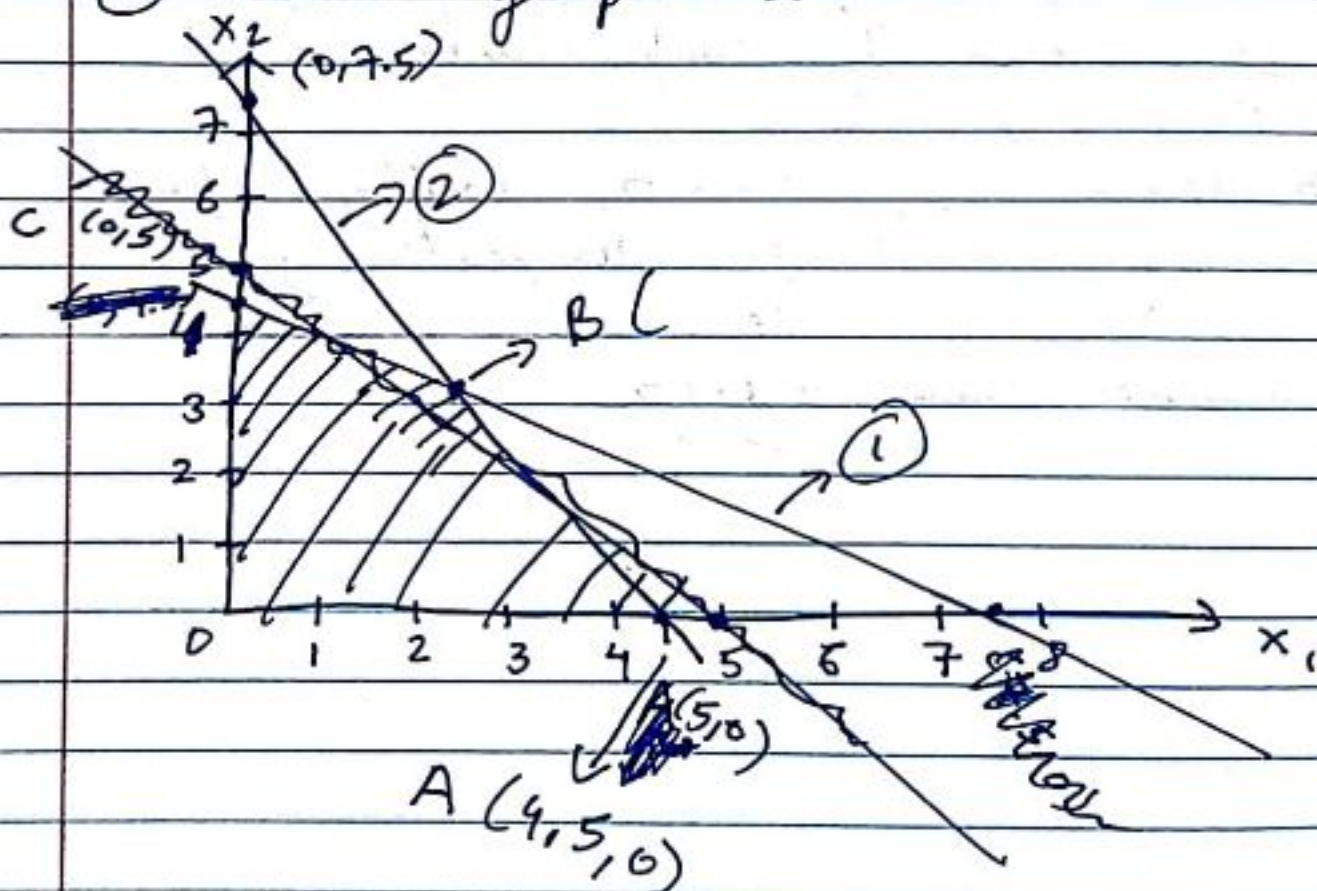 x2
(0,7.5)
7
②
6
C (0,5)
5
B (
4
3
①
2
1
0 1 2 3 4 5 6 7 8 x1
(5,0)
A (4,5,0)